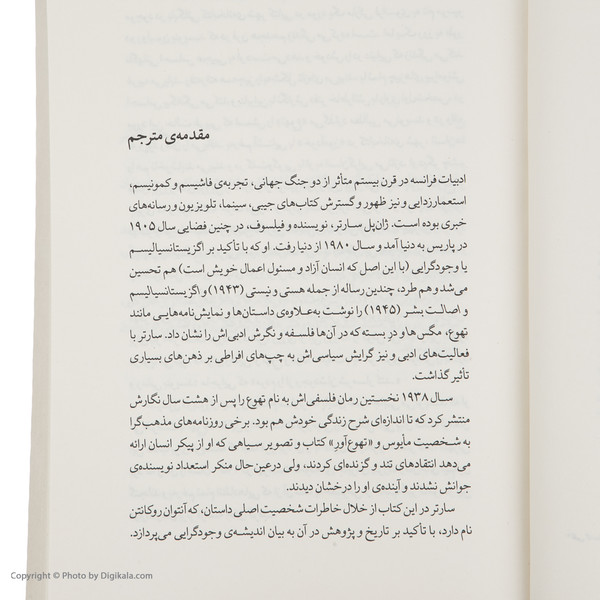 مقدمه‌ی مترجم
ادبیات فرانسه در قرن بیستم متأثر از دو جنگ جهانی، تجربه‌ی فاشیسم و کمونیسم،
استعمارزدایی و نیز ظهور و گسترش کتاب‌های جیبی، سینما، تلویزیون و رسانه‌های
خبری بوده است. ژان‌پل سارتر، نویسنده و فیلسوف، در چنین فضایی سال ۱۹۰۵
در پاریس به دنیا آمد و سال ۱۹۸۰ از دنیا رفت. او که با تأکید بر اگزیستانسیالیسم
یا وجودگرایی (با این اصل که انسان آزاد و مسئول اعمال خویش است) هم تحسین
می‌شد و هم طرد، چندین رساله از جمله هستی و نیستی (۱۹۴۳) و اگزیستانسیالیسم
و اصالت بشر (۱۹۴۵) را نوشت به‌علاوه‌ی داستان‌ها و نمایش‌نامه‌هایی مانند
تهوع، مگس‌ها و درِ بسته که در آن‌ها فلسفه و نگرش ادبی‌اش را نشان داد. سارتر با
فعالیت‌های ادبی و نیز گرایش سیاسی‌اش به چپ‌های افراطی بر ذهن‌های بسیاری
تأثیر گذاشت.
سال ۱۹۳۸ نخستین رمان فلسفی‌اش به نام تهوع را پس از هشت سال نگارش
منتشر کرد که تا اندازه‌ای شرح زندگی خودش هم بود. برخی روزنامه‌های مذهب‌گرا
به شخصیت مأیوس و «تهوع‌آورِ» کتاب و تصویر سیاهی که او از پیکر انسان ارائه
می‌دهد انتقادهای تند و گزنده‌ای کردند، ولی درعین‌حال منکر استعداد نویسنده‌ی
جوانش نشدند و آینده‌ی او را درخشان دیدند.
سارتر در این کتاب از خلال خاطرات شخصیت اصلی داستان، که آنتوان روکانتن
نام دارد، با تأکید بر تاریخ و پژوهش در آن به بیان اندیشه‌ی وجودگرایی می‌پردازد.
Copyright © Photo by Digikala.com